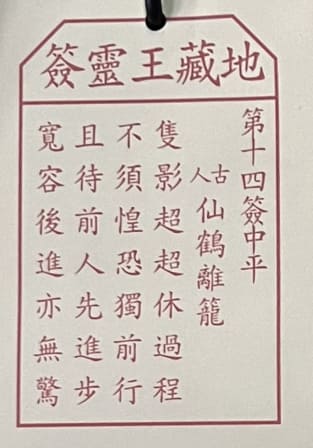 地藏王靈簽
第十四簽中平
古人仙鶴離籠
隻影超超休過程
不須惶恐獨前行
且待前人先進步
寬容後進亦無驚